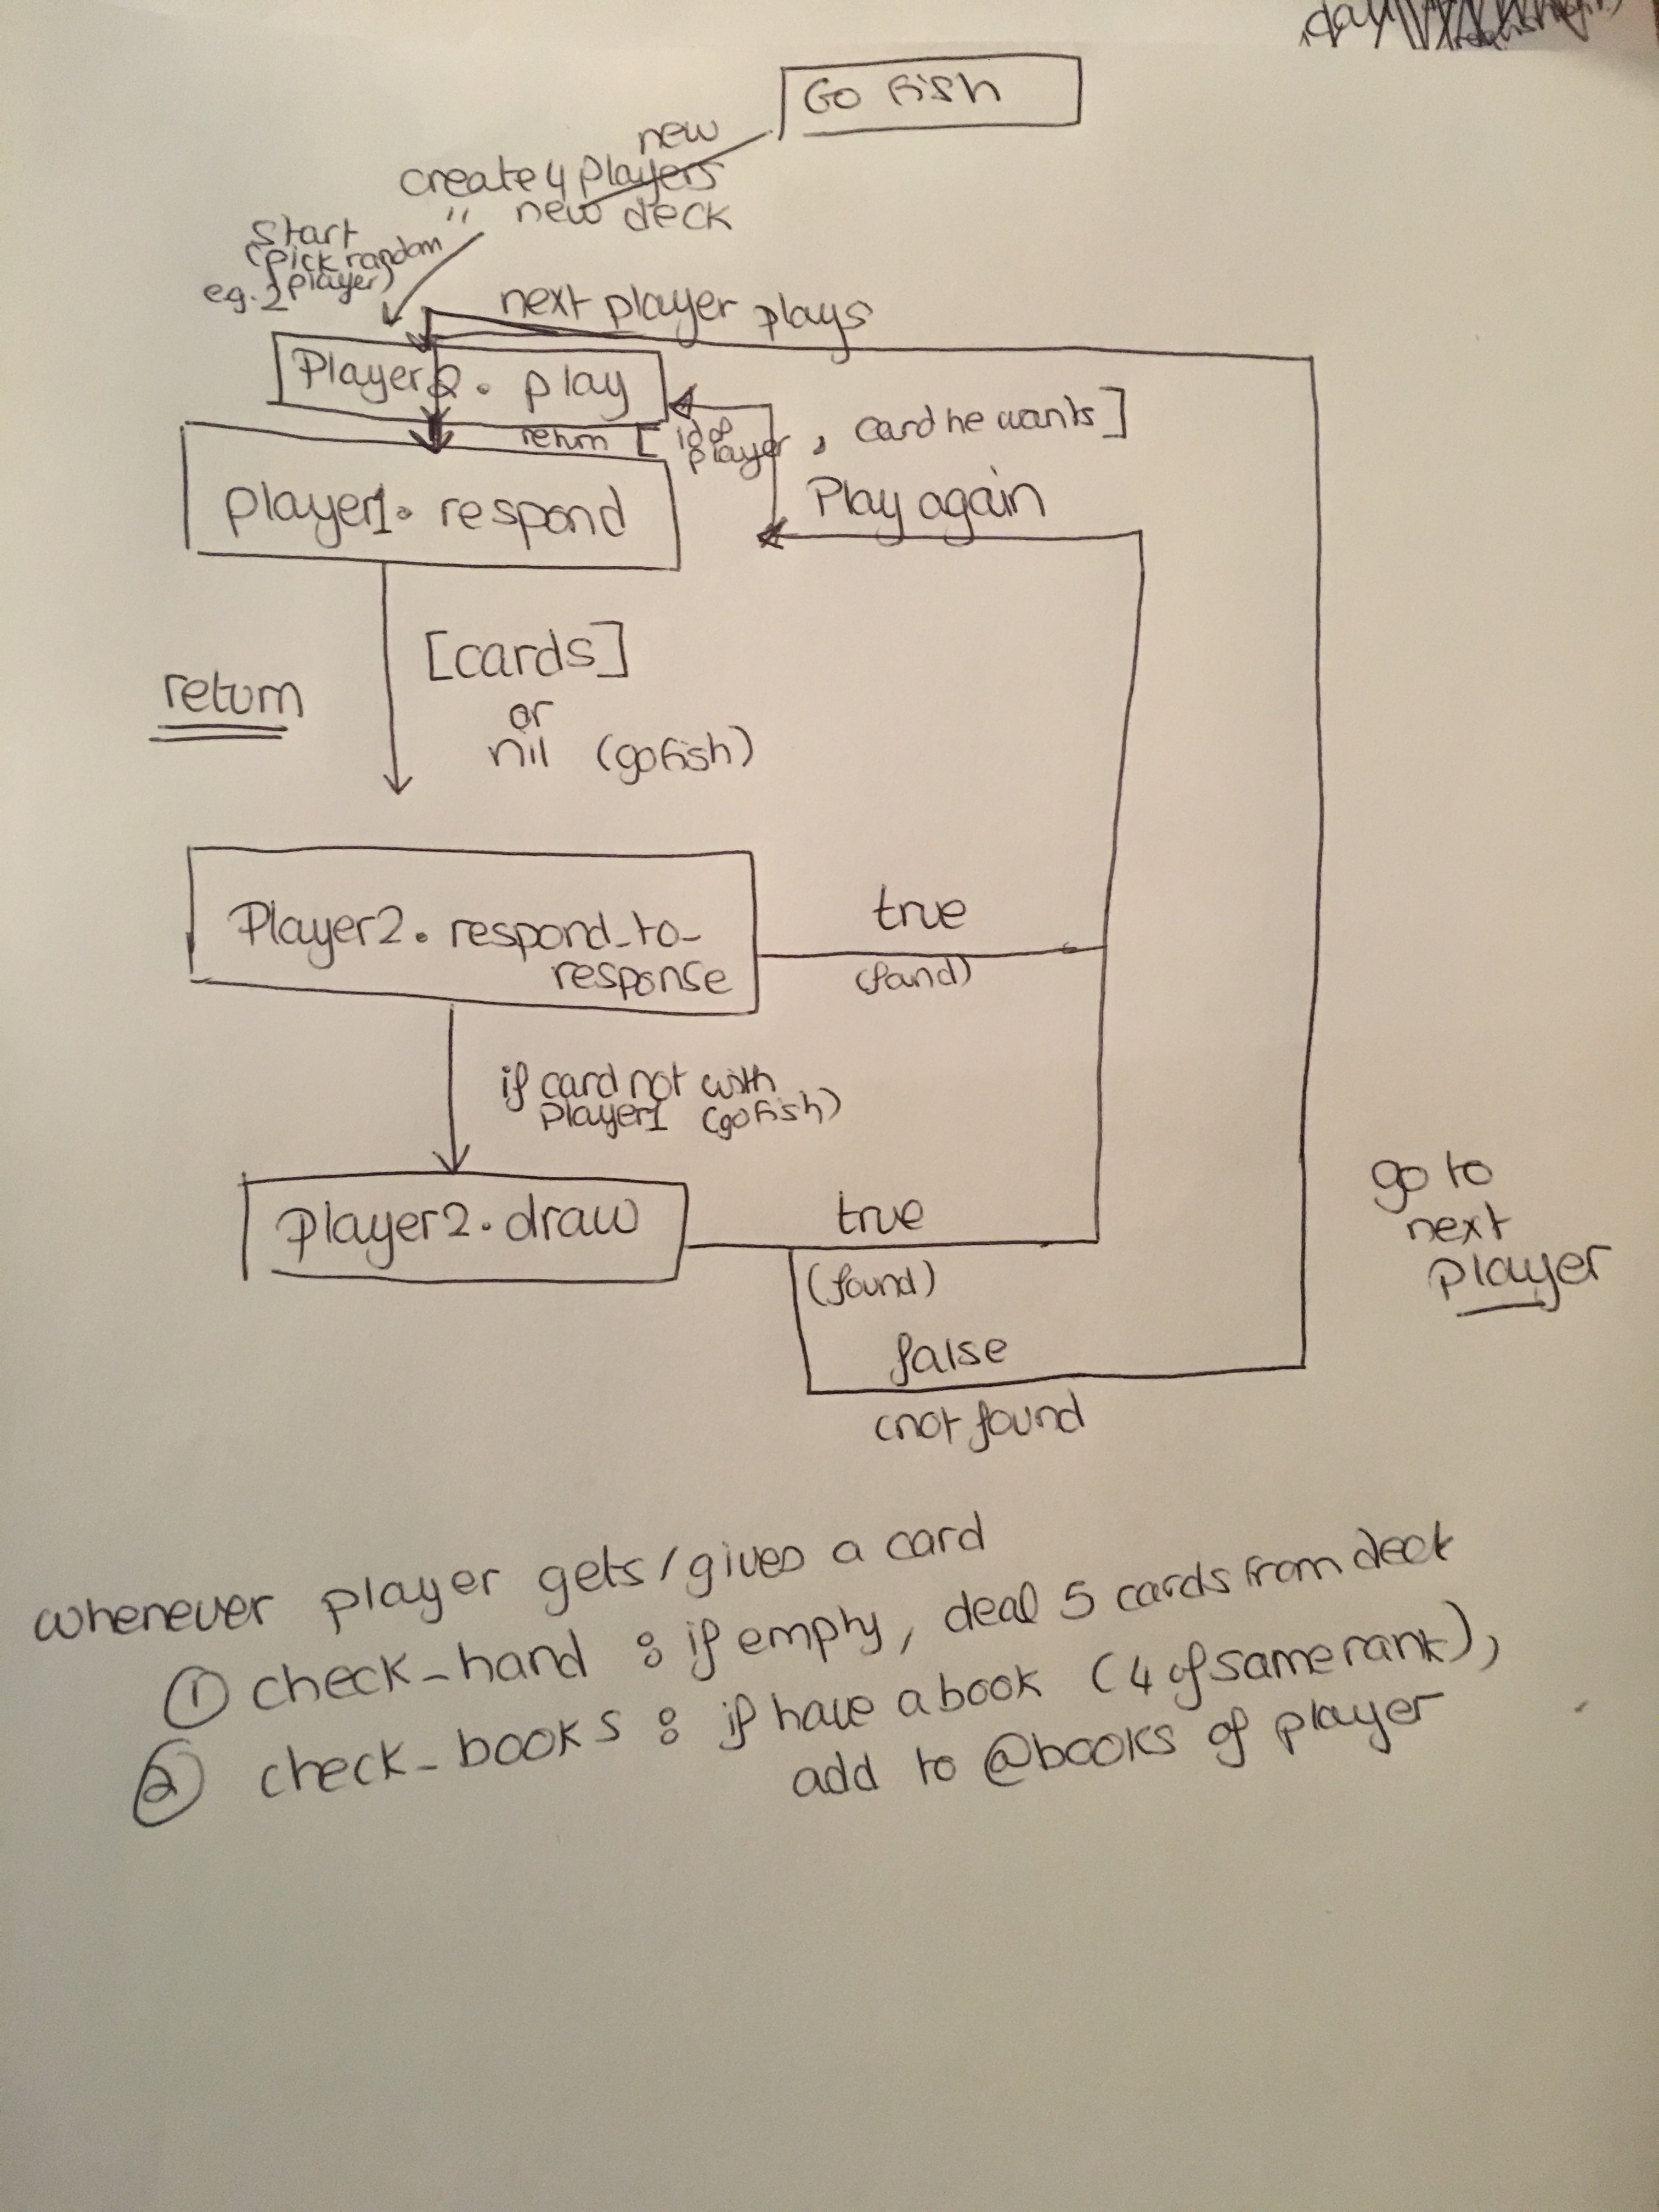 day
Go Fish
new
create 4 players
" new deck
Start
(pick random
player)
eg. 2
next player plays
Player2. play
return [id of player, card he wants]
player1. respond
Play again
[cards]
or
nil (gofish)
return
Player2. respond_to_
response
true
(found)
if card not with
Player1 (gofish)
Player2.draw
true
(found)
false
(not found
go to
next
player
whenever player gets/gives a card
① check_hand : if empty, deal 5 cards from deck
② check_books : if have a book (4 of same rank),
add to @books of player